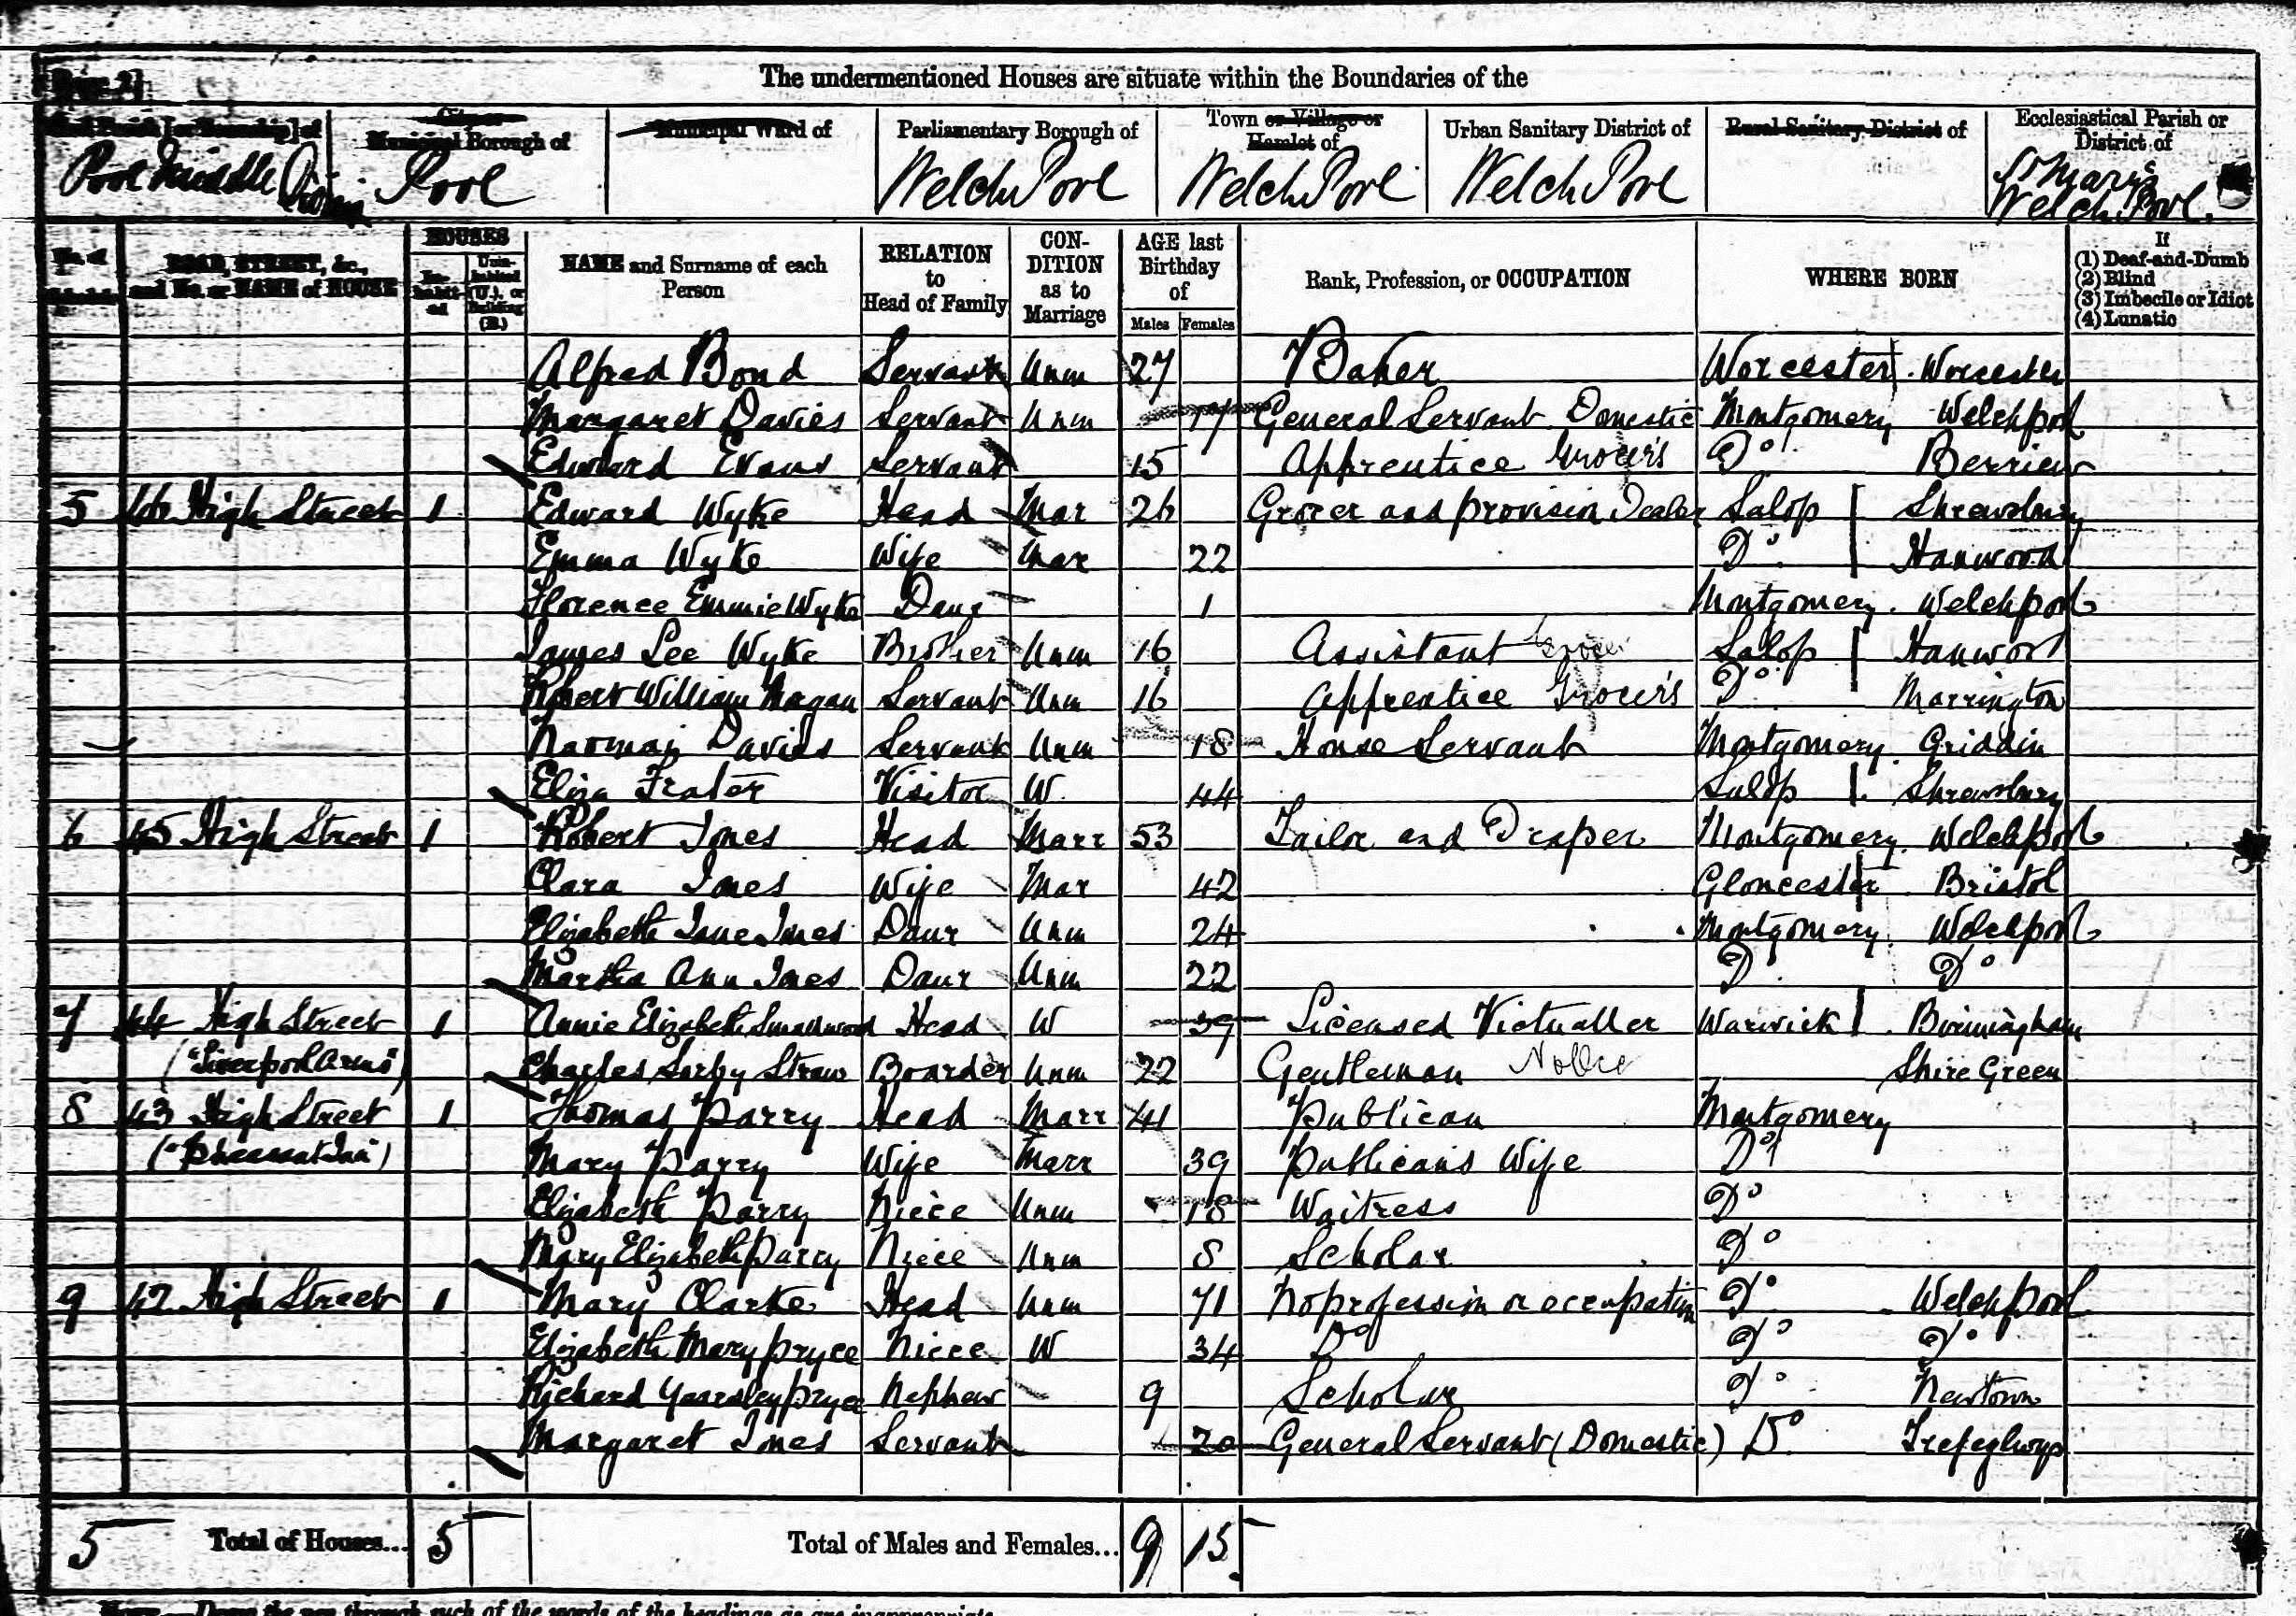 Page 2]
The undermentioned Houses are situate within the Boundaries of the
Civil Parish [or Township] of
City or Municipal Borough of
Municipal Ward of
Parliamentary Borough of
Town or Village or Hamlet of
Urban Sanitary District of
Rural Sanitary District of
Ecclesiastical Parish or District of
Pool Middle
Pool
Welch Pool
Welch Pool
Welch Pool
St Mary's Welch Pool.
No. of Schedule
ROAD, STREET, &c., and No. or NAME of HOUSE
HOUSES
Inhabited
Uninhabited (U.), or Building (B.)
NAME and Surname of each Person
RELATION to Head of Family
CONDITION as to Marriage
AGE last Birthday of
Males
Females
Rank, Profession, or OCCUPATION
WHERE BORN
If
(1) Deaf-and-Dumb
(2) Blind
(3) Imbecile or Idiot
(4) Lunatic
Alfred Bond Servant Unm 27 Baker Worcester Worcester
Margaret Davies Servant Unm 17 General Servant Domestic Montgomery Welchpool
Edward Evans Servant 15 Apprentice Grocer's Do Berriew
5 46 High Street 1 Edward Wyke Head Mar 26 Grocer and provision Dealer Salop Shrewsbury
Emma Wyke Wife Mar 22 Do Hanwood
Florence Emmie Wyke Daur 1 Montgomery Welchpool
James Lee Wyke Brother Unm 16 Assistant Grocer Salop Hanwood
Robert William Servant Unm 16 Apprentice Grocer's Do Marrington
Davies Servant Unm 18 House Servant Montgomery
Eliza Frater Visitor W. 44 Salop Shrewsbury
6 45 High Street 1 Robert Jones Head Marr 53 Tailor and Draper Montgomery Welchpool
Clara Jones Wife Mar 42 Gloucester Bristol
Elizabeth Jane Jones Daur Unm 24 Montgomery Welchpool
Martha Ann Jones Daur Unm 22 Do Do
7 44 High Street 1 Annie Elizabeth Smallwood Head W 39 Licensed Victualler Warwick Birmingham
("Liverpool Arms") Charles Sorby Straw Boarder Unm 22 Gentleman Shire Green
8 43 High Street 1 Thomas Parry Head Marr 41 Publican Montgomery
("Pheasant Inn") Mary Parry Wife Marr 39 Publican's Wife Do
Elizabeth Parry Niece Unm 18 Waitress Do
Mary Elizabeth Parry Niece Unm 8 Scholar Do
9 42 High Street 1 Mary Clarke Head Unm 71 No profession or occupation Do Welchpool
Elizabeth Mary Pryce Niece W 34 Do Do Do
Richard Yearsley Pryce Nephew 9 Scholar Do Newtown
Margaret Jones Servant 20 General Servant (Domestic) Do Trefeglwys
5 Total of Houses... 5 Total of Males and Females... 9 15